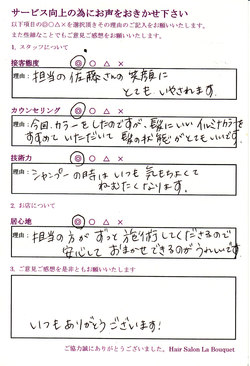 サービス向上の為にお声をおきかせ下さい
以下項目の◎○△×を選択頂きその理由のご記入をお願いいたします。
また些細なことでもご意見ご感想をお願いいたします。
1. スタッフについて
接客態度 ◎ ○ △ ×
理由：担当の佐藤さんの笑顔に
とてもいやされます。
カウンセリング ◎ ○ △ ×
理由：今回、カラーをしたのですが、髪にいいイルミナカラーを
すすめていただいて髪の状態がとてもいいです。
技術力 ◎ ○ △ ×
理由：シャンプーの時はいつも気もちよくて
ねむたくなります。
2. お店について
居心地 ◎ ○ △ ×
理由：担当の方がずっと施術してくださるので
安心しておまかせできるのがうれしいです。
3. ご意見ご感想を是非ともお願いいたします
いつもありがとうございます!
ご協力誠にありがとうございました。Hair Salon La Bouquet